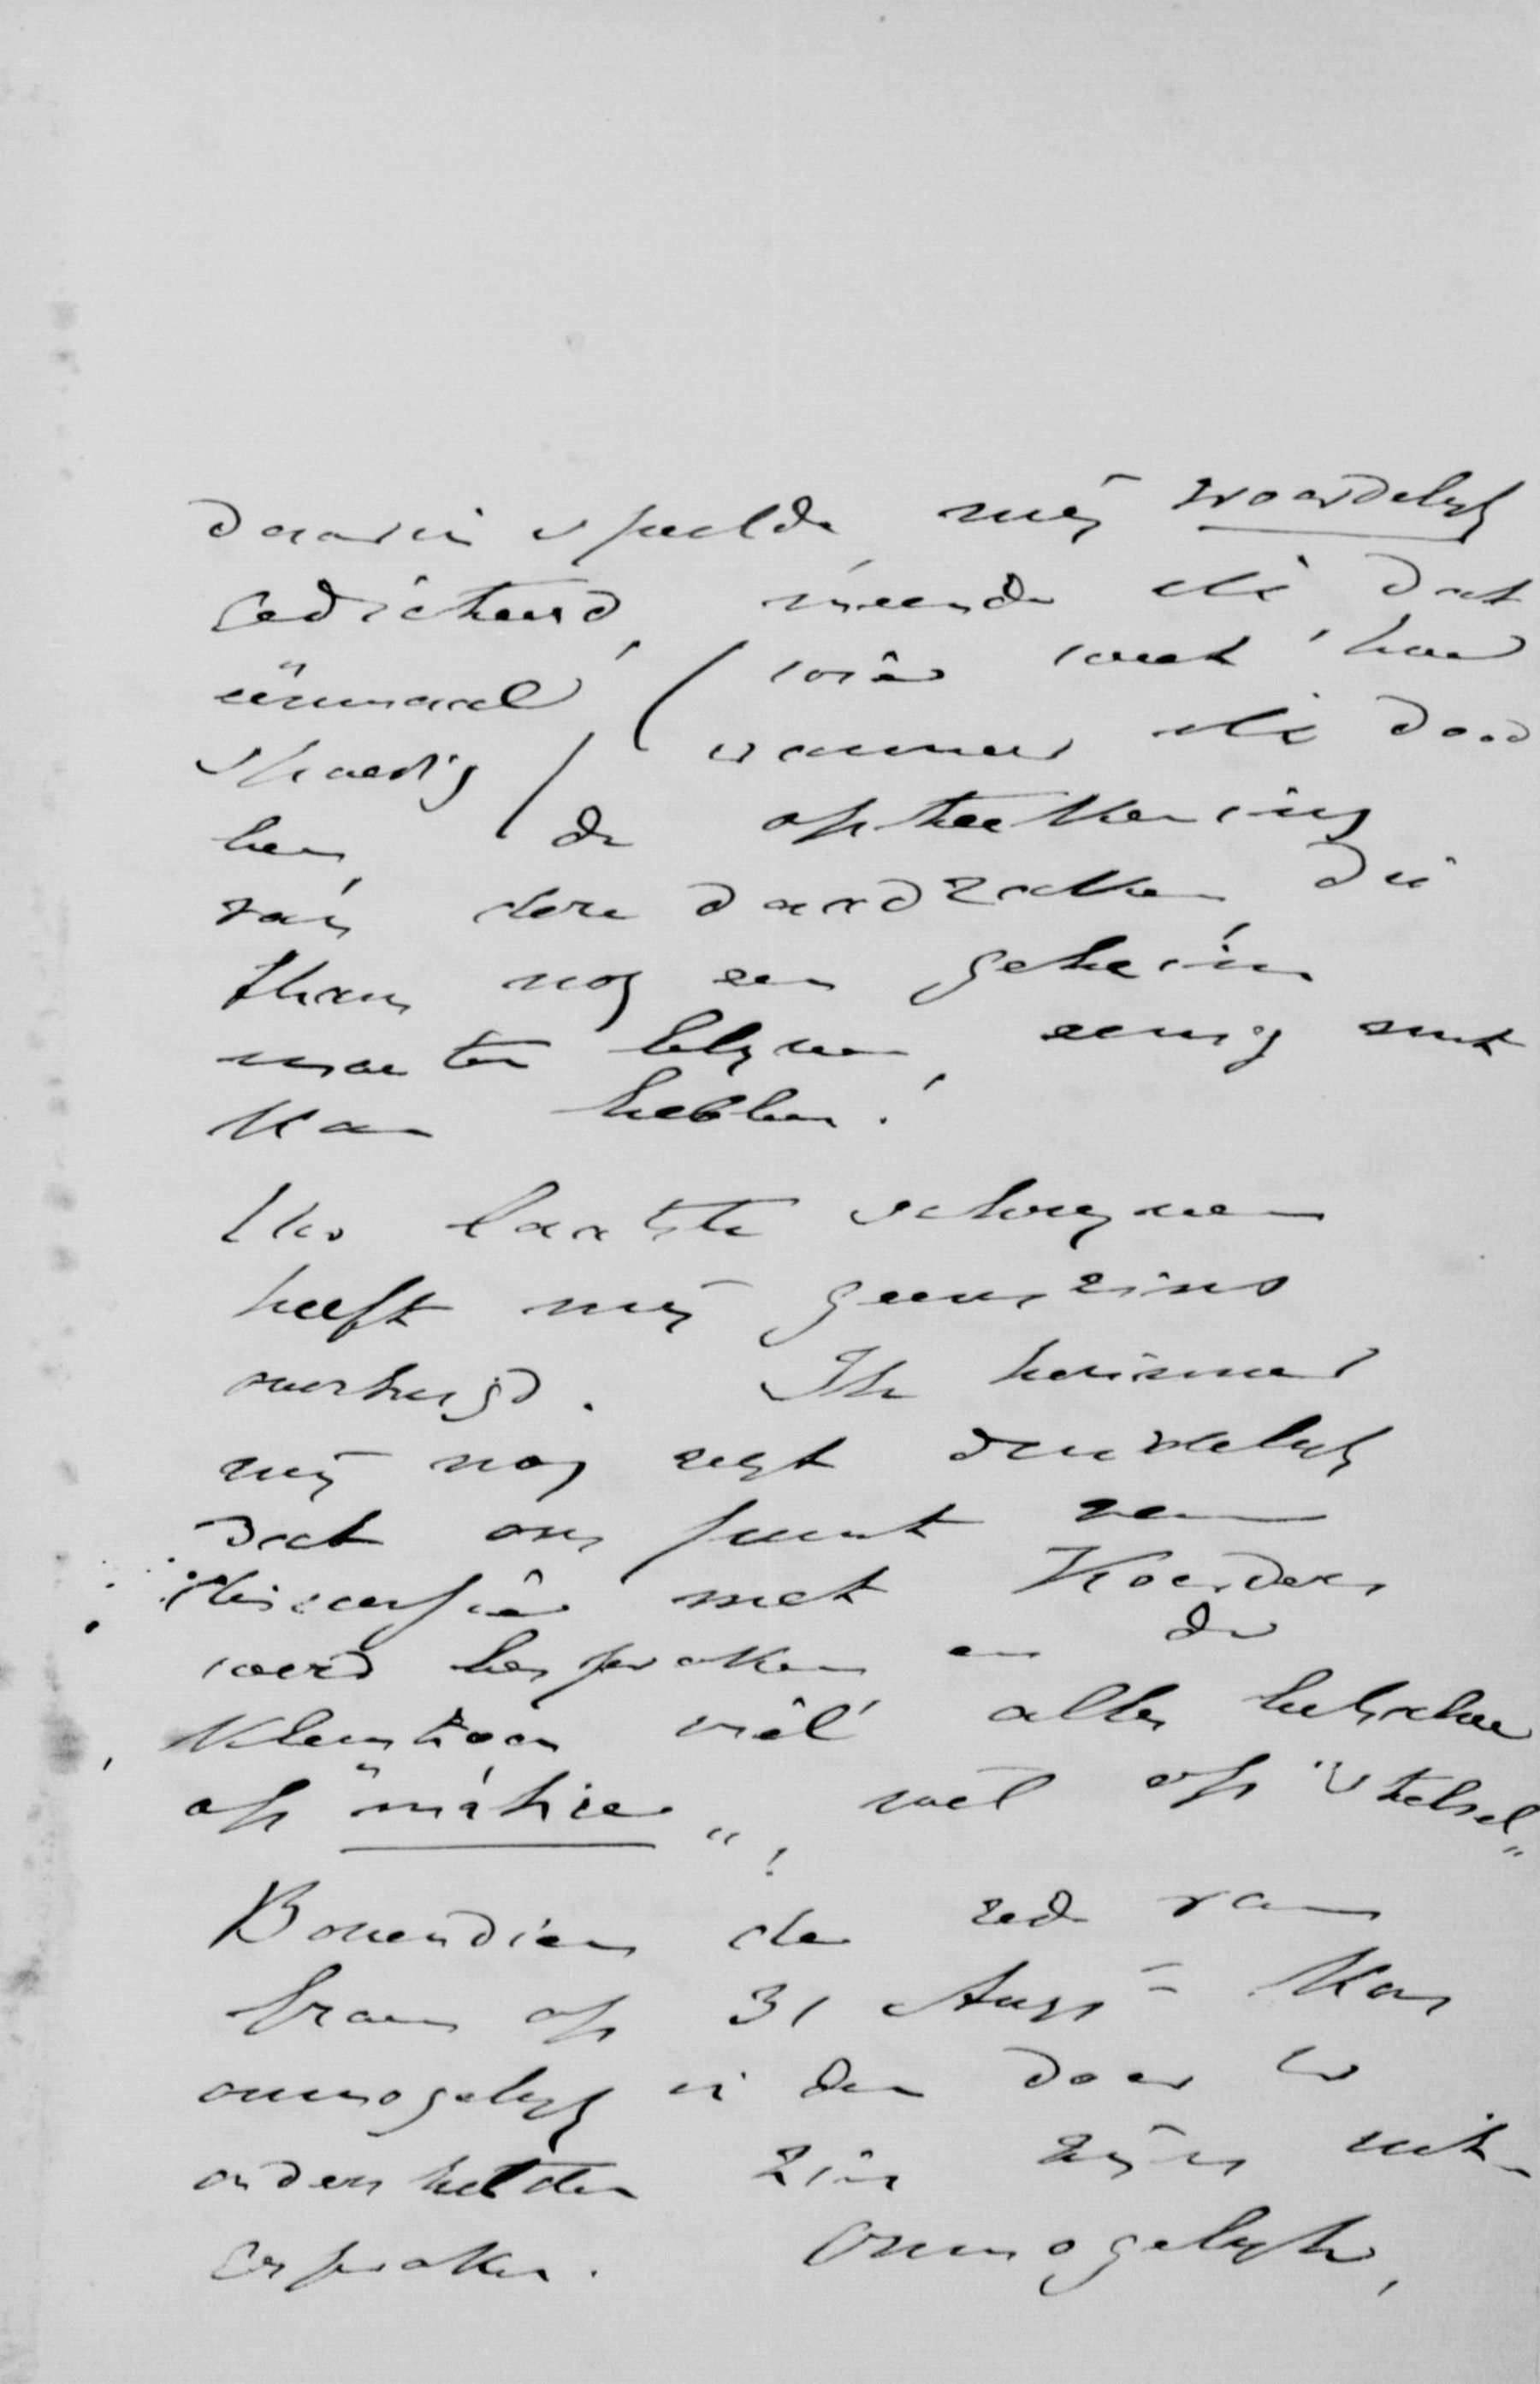 daarin speelde, mij woordelijk
gedicteerd, meende ik dat
éénmaal, (wie weet hoe
spoedig) wanneer ik dood
ben, de opteekening
van deze daadzaken, die
thans nog een geheim
moeten blijven, eenig nut
kan hebben.
Uw laatste schrijven
heeft mij geenszins
overtuigd. Ik herinner
mij nog zeer duidelijk
dat ons punt van
discussie met Koorders
werd besproken en de
klemtoon viel alles behalve
op "motie", wel op "stelsel"
Bovendien de rede van
Fransen op 31 Augs kan
onmogelijk in den door U
onderstelden zin zijn uit-
gesproken. Onmogelijk,